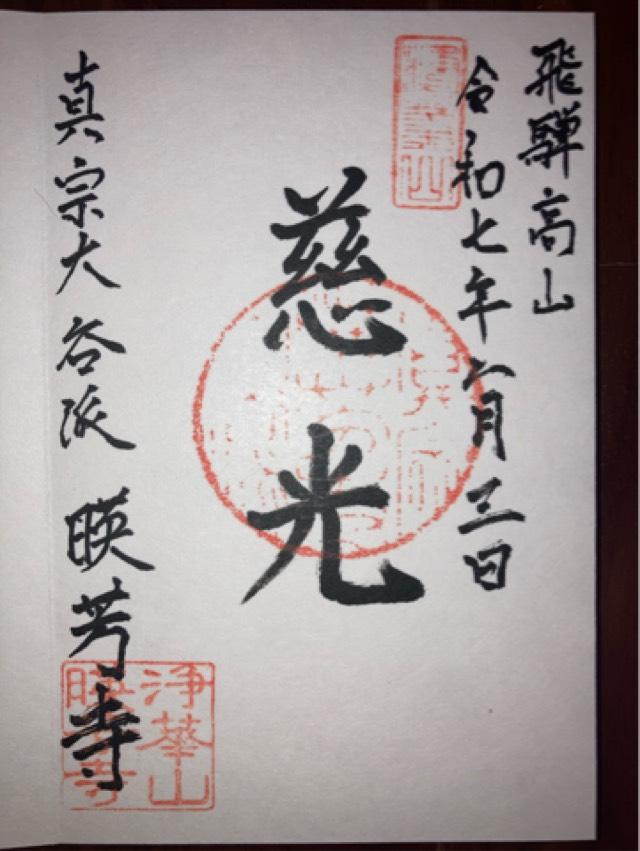 飛騨高山
令和七年六月三日
慈光
真宗大谷派 暎芳寺
浄華山
暎芳寺